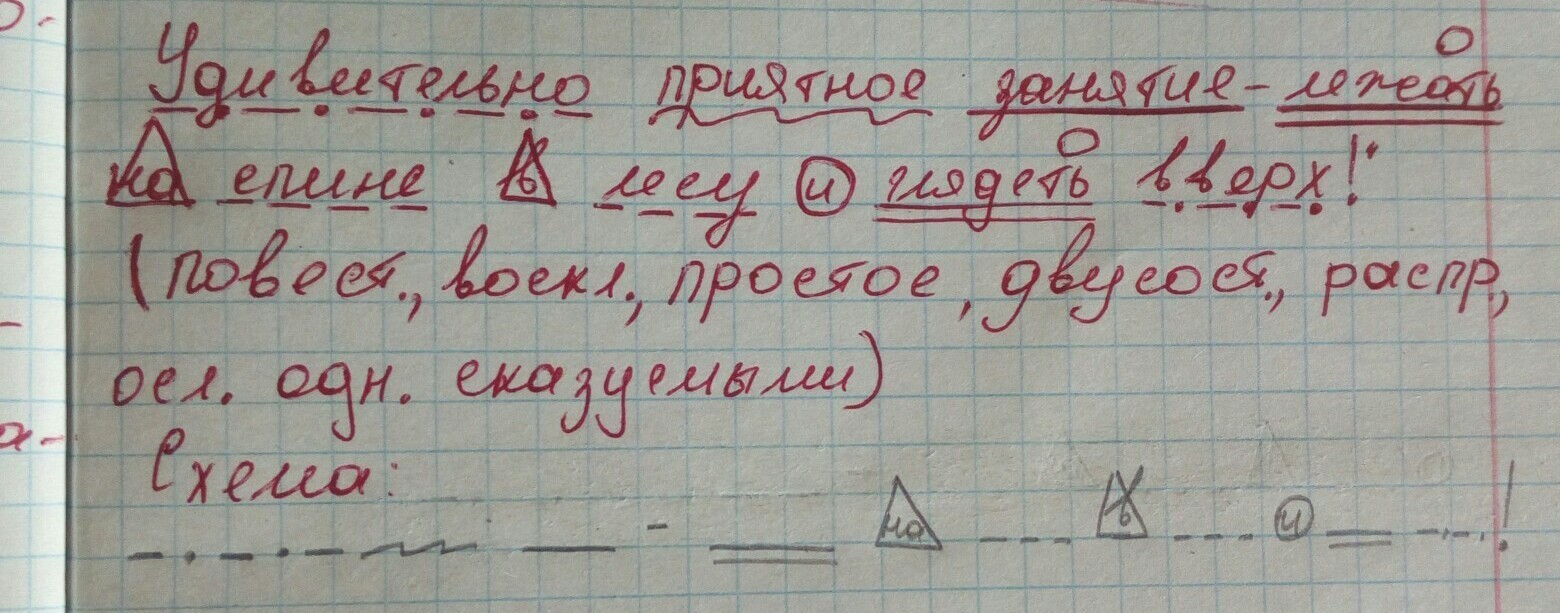 Удивительно приятное занятие - лежать
на спине в лесу и глядеть вверх!
(повест., воскл., простое, двусост., распр.,
осл. одн. сказуемыми)
Схема:
- на в и !